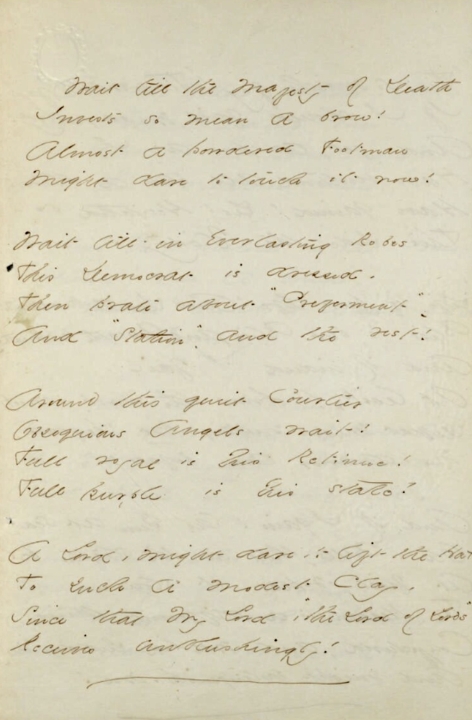 Wait till the Majesty of Death
Invests so mean a brow!
Almost a powdered Footman
Might dare to touch it now!

Wait till in Everlasting Robes
This Democrat is dressed.
Then prate about "Preferment"
And "Station" and the rest!

Around this quiet Courtier
Obsequious Angels wait!
Full royal is his Retinue!
Full purple is his state!

A Lord, might dare to lift the Hat
To such a Modest Clay,
Since that My Lord, "the Lord of Lords"
Receives unblushingly!